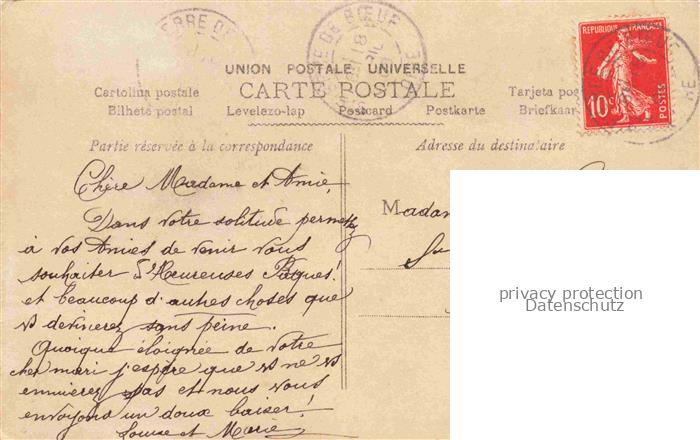 RRE DE
RE DE BŒUF
18
REPUBLIQUE FRANÇAISE
10c
POSTES
UNION POSTALE UNIVERSELLE
CARTE POSTALE
Cartolina postale Tarjeta pos
Bilhete postal Levelezo-lap Postcard Postkarte Briefkaar
Partie réservée à la correspondance
Adresse du destinataire
Chère Madame et Amie,
Dans votre solitude permettez
à vos Amies de venir vous
souhaiter d'Heureuses Pâques!
et beaucoup d'autres choses que
vs devinerez sans peine.
Quoique éloignée de votre
cher mari j'espère que vs ne vs
ennuierez pas et nous vous
envoyons un doux baiser!
Louise et Marie
Madam
privacy protection
Datenschutz